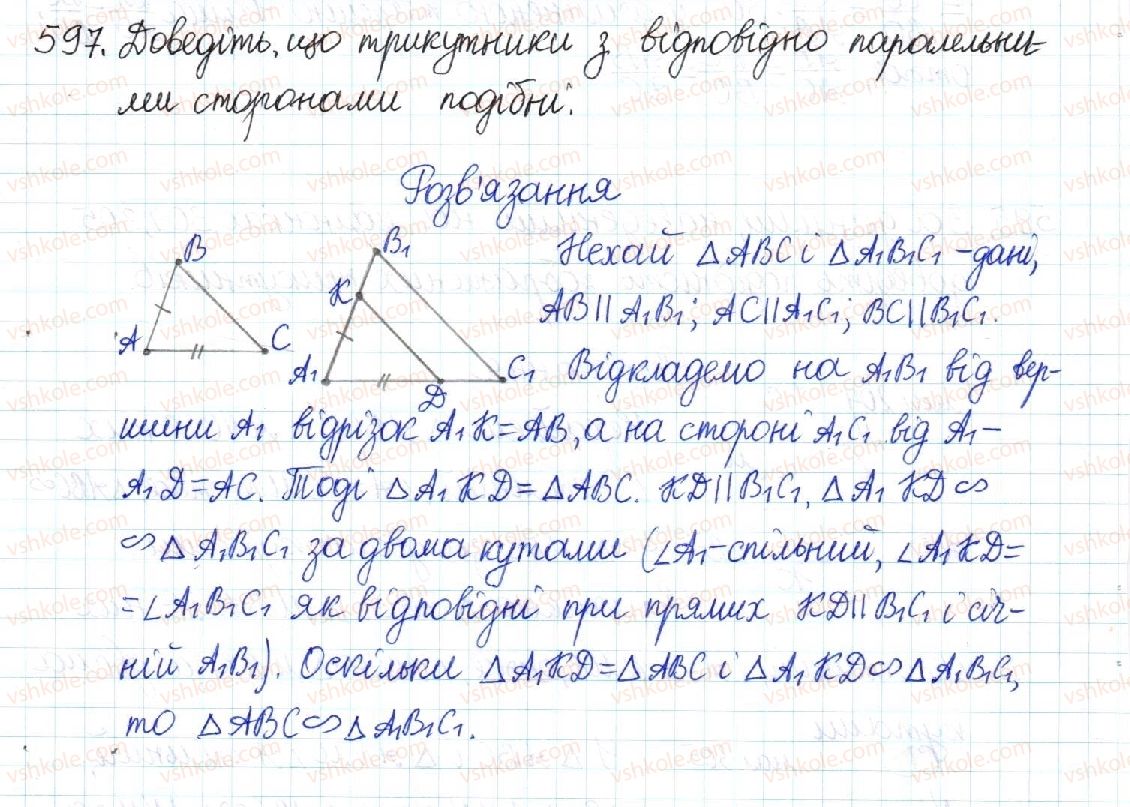 597. Доведіть, що трикутники з відповідно паралельни-
ми сторонами подібні.
Розв'язання
B
A
C
B₁
K
A₁
D
C₁
Нехай △ABC і △A₁B₁C₁ - дані,
AB || A₁B₁; AC || A₁C₁; BC || B₁C₁.
Відкладемо на A₁B₁ від вер-
шини A₁ відрізок A₁K = AB, а на стороні A₁C₁ від A₁ -
A₁D = AC. Тоді △A₁KD = △ABC. KD || B₁C₁, △A₁KD ∽
∽ △A₁B₁C₁ за двома кутами (∠A₁ - спільний, ∠A₁KD =
= ∠A₁B₁C₁ як відповідні при прямих KD || B₁C₁ і січ-
ній A₁B₁). Оскільки △A₁KD = △ABC і △A₁KD ∽ △A₁B₁C₁,
то △ABC ∽ △A₁B₁C₁.
vshkole.com